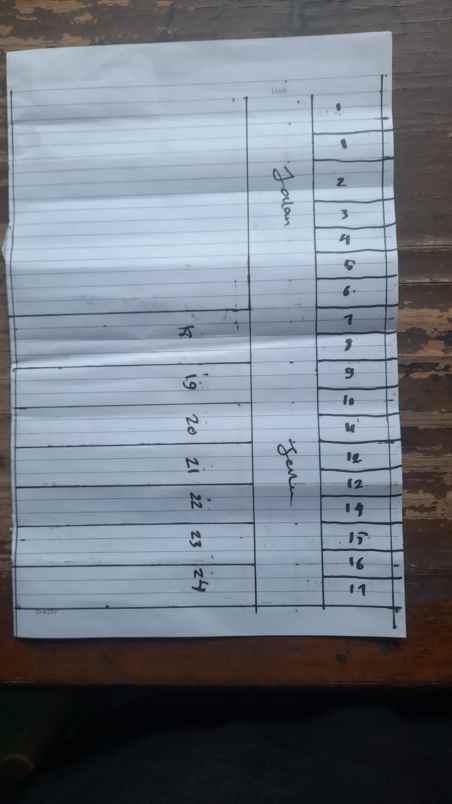 1
2
3
4
5
6
7
8
9
10
11
12
12
14
15
16
17
Jalan
18
19
20
21
22
23
24